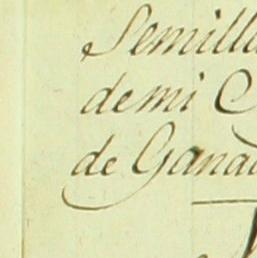 Semilla
de mi C
de Gana